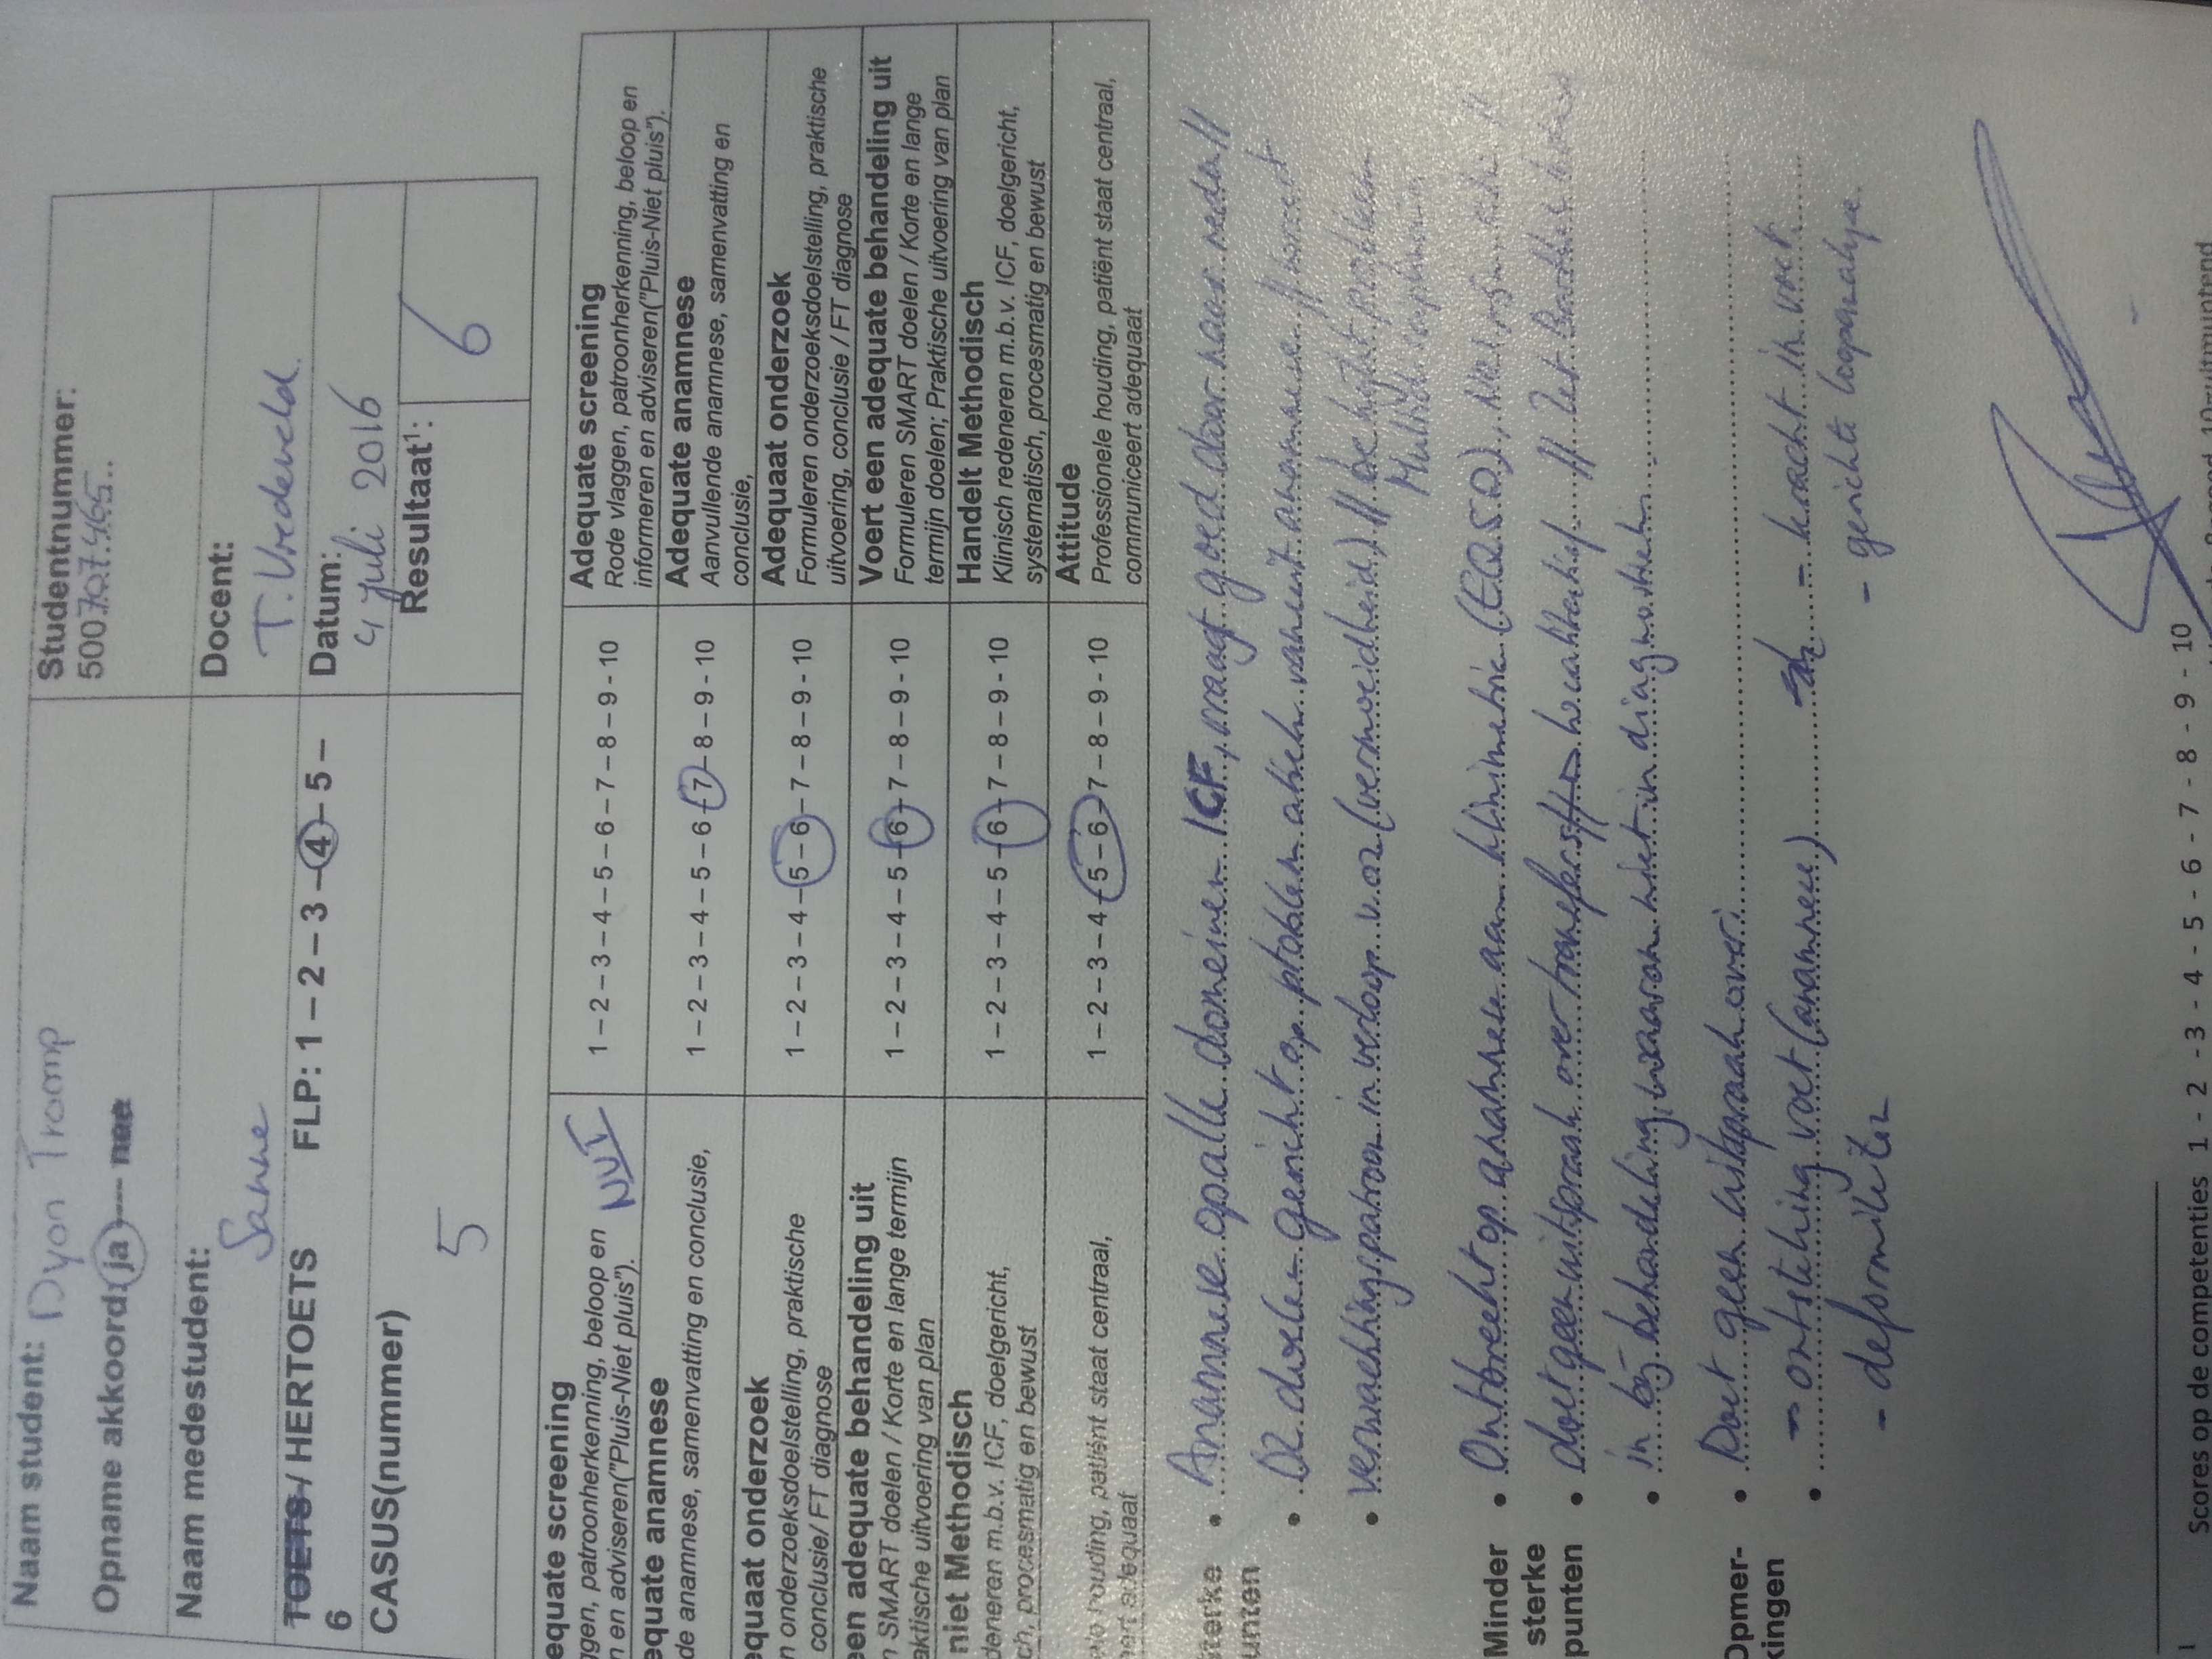 Naam student: Dyon Tromp
Studentnummer:
500707465
Opname akkoord: ja - nee
Naam medestudent:
Sanne
Docent:
T. Vredeveld
TOETS / HERTOETS FLP: 1 – 2 – 3 – 4 – 5 –
6
Datum:
4 juli 2016
CASUS(nummer)
5
Resultaat¹:
6
equate screening
ggen, patroonherkenning, beloop en
n en adviseren("Pluis-Niet pluis").
NVT
1 – 2 – 3 – 4 – 5 – 6 – 7 – 8 – 9 - 10
Adequate screening
Rode vlaggen, patroonherkenning, beloop en
informeren en adviseren("Pluis-Niet pluis").
equate anamnese
de anamnese, samenvatting en conclusie,
1 – 2 – 3 – 4 – 5 – 6 – 7 – 8 – 9 - 10
Adequate anamnese
Aanvullende anamnese, samenvatting en
conclusie,
equaat onderzoek
n onderzoeksdoelstelling, praktische
conclusie/ FT diagnose
1 – 2 – 3 – 4 – 5 – 6 – 7 – 8 – 9 - 10
Adequaat onderzoek
Formuleren onderzoeksdoelstelling, praktische
uitvoering, conclusie / FT diagnose
een adequate behandeling uit
n SMART doelen / Korte en lange termijn
aktische uitvoering van plan
1 – 2 – 3 – 4 – 5 – 6 – 7 – 8 – 9 - 10
Voert een adequate behandeling uit
Formuleren SMART doelen / Korte en lange
termijn doelen; Praktische uitvoering van plan
niet Methodisch
deneren m.b.v. ICF, doelgericht,
ch, procesmatig en bewust
1 – 2 – 3 – 4 – 5 – 6 – 7 – 8 – 9 - 10
Handelt Methodisch
Klinisch redeneren m.b.v. ICF, doelgericht,
systematisch, procesmatig en bewust
houding, patiënt staat centraal,
adequaat
1 – 2 – 3 – 4 – 5 – 6 – 7 – 8 – 9 - 10
Attitude
Professionele houding, patiënt staat centraal,
communiceert adequaat
sterke
unten
• Anamnese op alle domeinen ICF, vraagt goed door naar neda //
• OZ doelen gericht op probleem alsem vanuit anamnese // komt
• verwachtingspatroon in verloop v. oz (vermoeidheid) // benoight probleem
Minder
sterke
punten
• Ontbreekt op anamnese aan klinimetrie (EQ5D)
• doet geen uitspraak over transfers
• in bij behandeling, waarom niet in diagnostiek
Opmer-
kingen
• Doet geen uitspraak over:
• – ontstekking voet (anamnese) – kracht in voet
– deformiteiten – gerichte loopanalyse.
1 Scores op de competenties 1 - 2 - 3 - 4 - 5 - 6 - 7 - 8 - 9 - 10